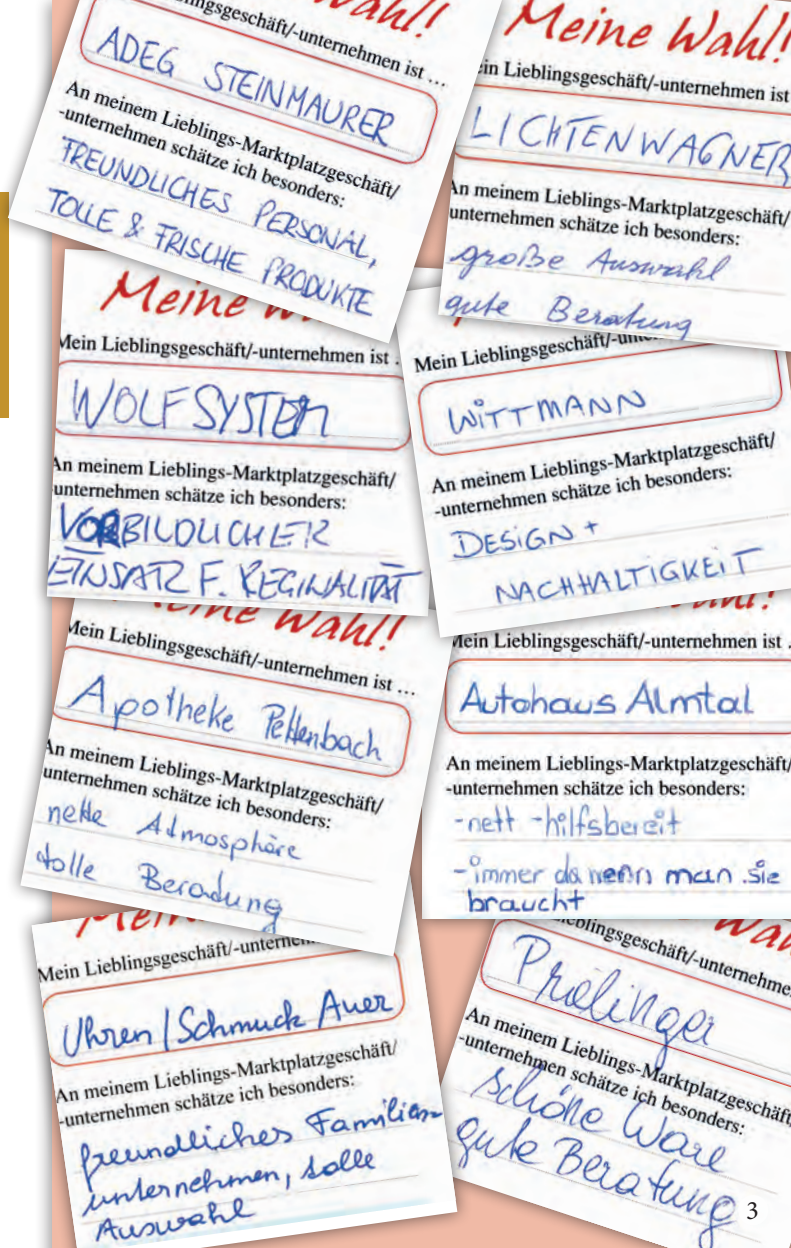 Wahl!
ngsgeschäft/-unternehmen ist ...
ADEG STEINMAURER
An meinem Lieblings-Marktplatzgeschäft/
-unternehmen schätze ich besonders:
FREUNDLICHES PERSONAL,
TOLLE & FRISCHE PRODUKTE
Meine Wahl!
ein Lieblingsgeschäft/-unternehmen ist
LICHTENWAGNER
An meinem Lieblings-Marktplatzgeschäft/
unternehmen schätze ich besonders:
große Auswahl
gute Beratung
Meine
Mein Lieblingsgeschäft/-unternehmen ist .
WOLF SYSTEM
An meinem Lieblings-Marktplatzgeschäft/
unternehmen schätze ich besonders:
VORBILDLICHER
EINSATZ F. REGINALITÄT
Mein Lieblingsgeschäft/-unte
WITTMANN
An meinem Lieblings-Marktplatzgeschäft/
-unternehmen schätze ich besonders:
DESIGN +
NACHHALTIGKEIT
Meine Wahl!
Mein Lieblingsgeschäft/-unternehmen ist ...
Apotheke Pettenbach
An meinem Lieblings-Marktplatzgeschäft/
unternehmen schätze ich besonders:
nette Admosphäre
tolle Beradung
Wahl!
Mein Lieblingsgeschäft/-unternehmen ist .
Autohaus Almtal
An meinem Lieblings-Marktplatzgeschäft/
-unternehmen schätze ich besonders:
-nett -hilfsbereit
-immer da wenn man sie
braucht
Mein
Mein Lieblingsgeschäft/-unterne
Uhren/Schmuck Auer
An meinem Lieblings-Marktplatzgeschäft/
-unternehmen schätze ich besonders:
freundliches Familien-
unternehmen, tolle
Auswahl
Wah
ieblingsgeschäft/-unternehme
An meinem Lieblings-Marktplatzgeschäft/
-unternehmen schätze ich besonders:
schöne Ware
gute Beratung
3